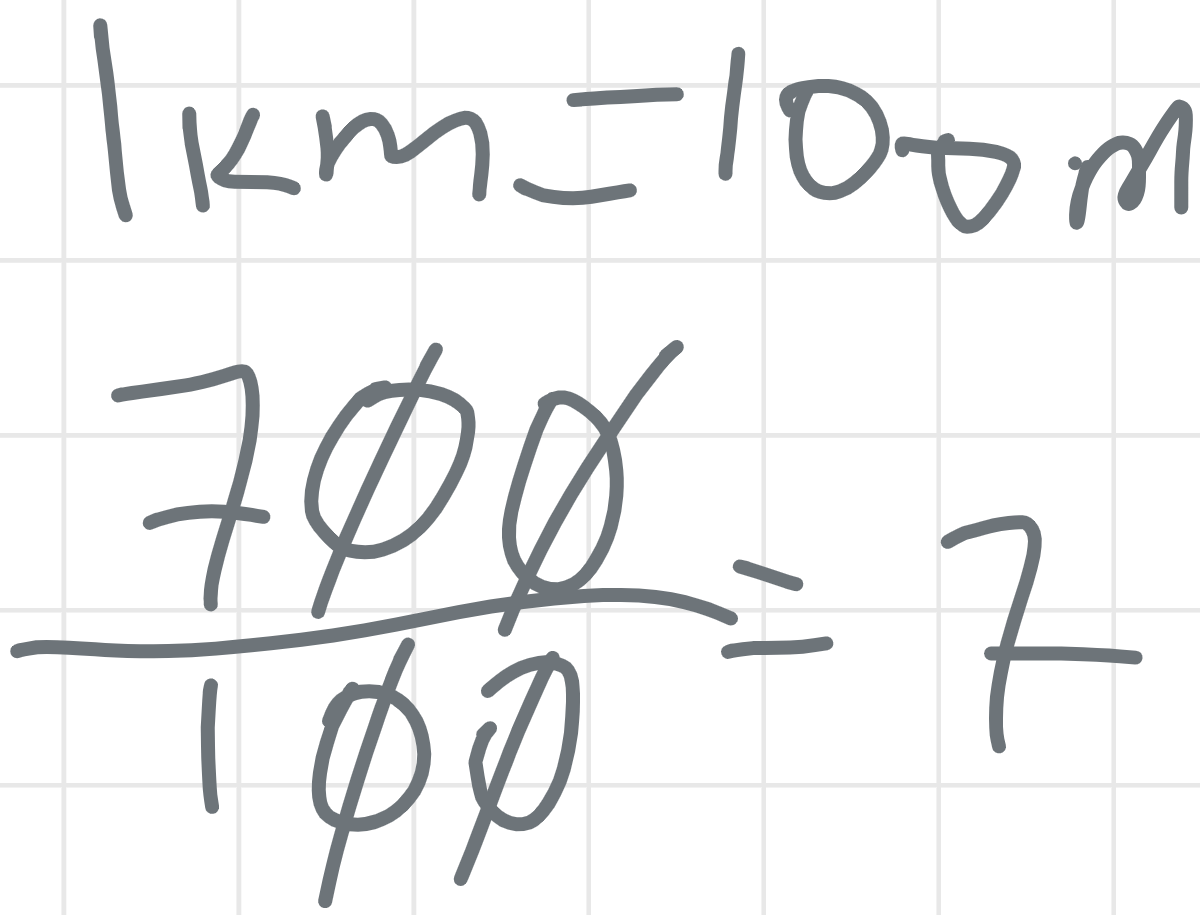 1km=100m
700
100
=7